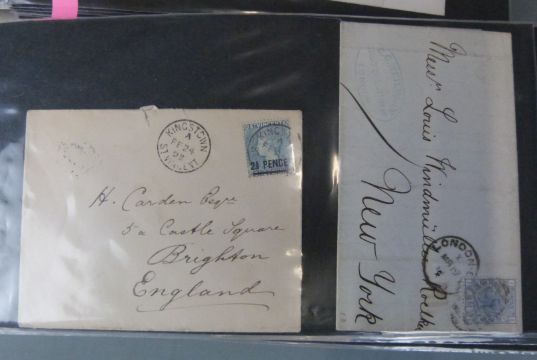 KINGSTOWN
A
FE 24
92
ST VINCENT
2½ PENCE
H. Carden Esqre
5a Castle Square
Brighton
England
Messrs Louis Windmüller & Roelker
New York
LONDON